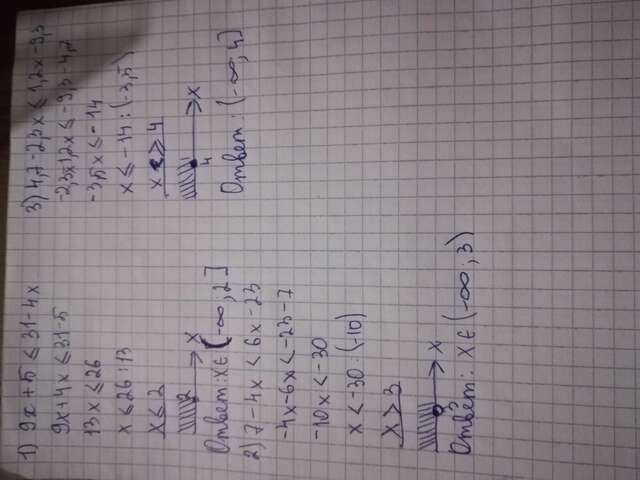 1) 9x + 5 ≤ 31 - 4x
9x + 4x ≤ 31 - 5
13x ≤ 26
x ≤ 26 : 13
x ≤ 2
2 x
Ответ: x∈(-∞; 2]
2) 7 - 4x < 6x - 23
-4x - 6x < -23 - 7
-10x < -30
x < -30 : (-10)
x > 3
3 x
Ответ: x∈(-∞; 3)
3) 4,7 - 2,3x ≤ 1,2x - 9,3
-2,3x 1,2x ≤ -9,3 - 4,7
-3,5x ≤ -14
x ≤ -14 : (-3,5)
x ≥ 4
4 x
Ответ: (-∞; 4]